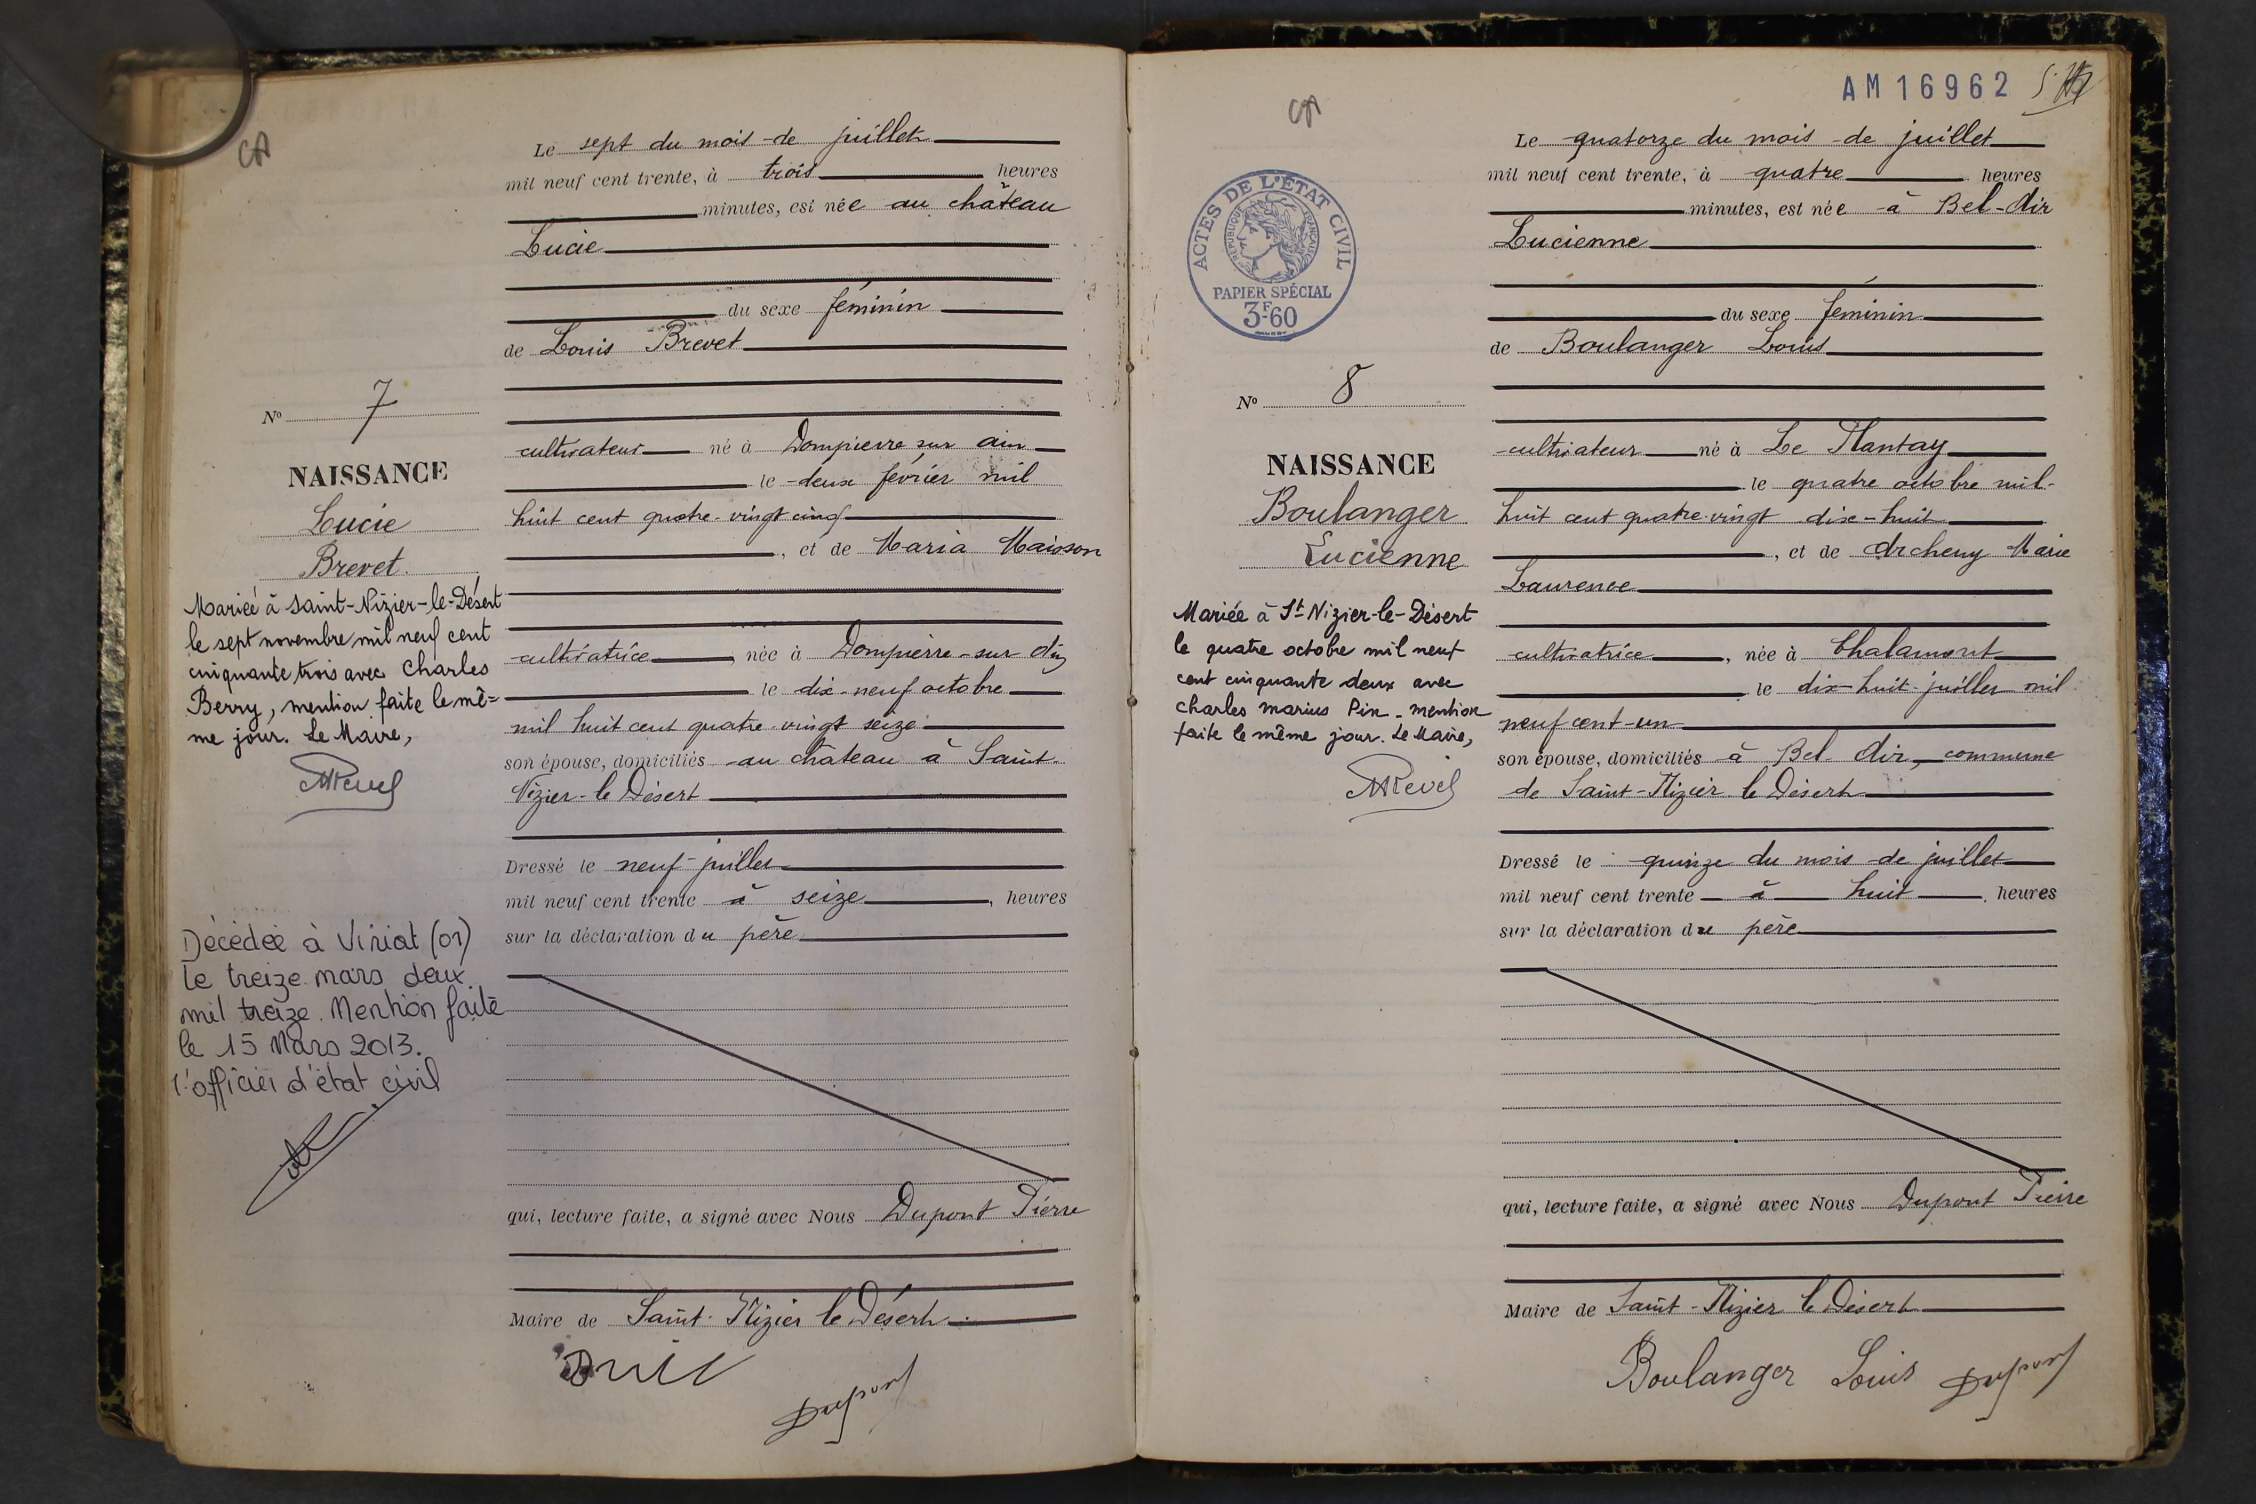 CA
Le sept du mois de juillet
mil neuf cent trente, à trois heures
minutes, est née au château
Lucie
du sexe féminin
de Louis Brevet
cultivateur né à Dompierre sur ain
le deux février mil
huit cent quatre-vingt cinq
, et de Maria Maisson
cultivatrice, née à Dompierre-sur Ain
le dix-neuf octobre
mil huit cent quatre-vingt seize
son épouse, domiciliés au château à Saint-
Nizier-le Désert
Dressé le neuf juillet
mil neuf cent trente à seize, heures
sur la déclaration du père
qui, lecture faite, a signé avec Nous Dupont Pierre
Maire de Saint-Nizier le Désert
Dupont
No 7
NAISSANCE
Lucie
Brevet.
Mariée à Saint-Nizier-le-Désert
le sept novembre mil neuf cent
cinquante trois avec Charles
Berry, mention faite le mê=
me jour. Le Maire,
Décédée à Viriat (01)
le treize mars deux
mil treize. Mention faite
le 15 Mars 2013.
l'officier d'état civil
AM 16962
CA
ACTES DE L'ÉTAT CIVIL
RÉPUBLIQUE FRANÇAISE
PAPIER SPÉCIAL
3F60
Le quatorze du mois de juillet
mil neuf cent trente, à quatre heures
minutes, est née à Bel-Air
Lucienne
du sexe féminin
de Boulanger Louis
cultivateur né à Le Plantay
le quatre octobre mil-
huit cent quatre-vingt dix-huit
, et de Archeny Marie
Laurence
cultivatrice, née à Chalamont
le dix-huit juillet mil
neuf cent-un
son épouse, domiciliés à Bel-Air, commune
de Saint-Nizier le Désert
Dressé le quinze du mois de juillet
mil neuf cent trente à huit, heures
sur la déclaration du père
qui, lecture faite, a signé avec Nous Dupont Pierre
Maire de Saint-Nizier le Désert
Boulanger Louis Dupont
No 8
NAISSANCE
Boulanger
Lucienne
Mariée à St Nizier-le-Désert
le quatre octobre mil neuf
cent cinquante deux avec
charles marius Pin - mention
faite le même jour. Le Maire,